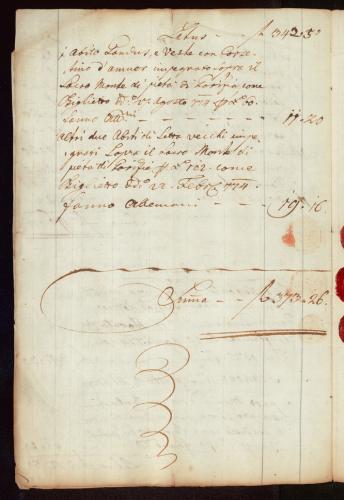 Latus - f 342.5
1 Abito Landus, e Veste con
tino d'amuer impegnato sopra il
Sacro Monte di pietà di Gorizia come
Biglietto d.º 1.º Agosto 774 p
fanno 11.20
altri due Abiti di Seta vecchi impe
gnati sopra il sacro Monte di
pietà di Gorizia p 102. come
Biglietto d.º 22. Febr. 774.
fanno Alleman 19.16
Suma - f 373.26.